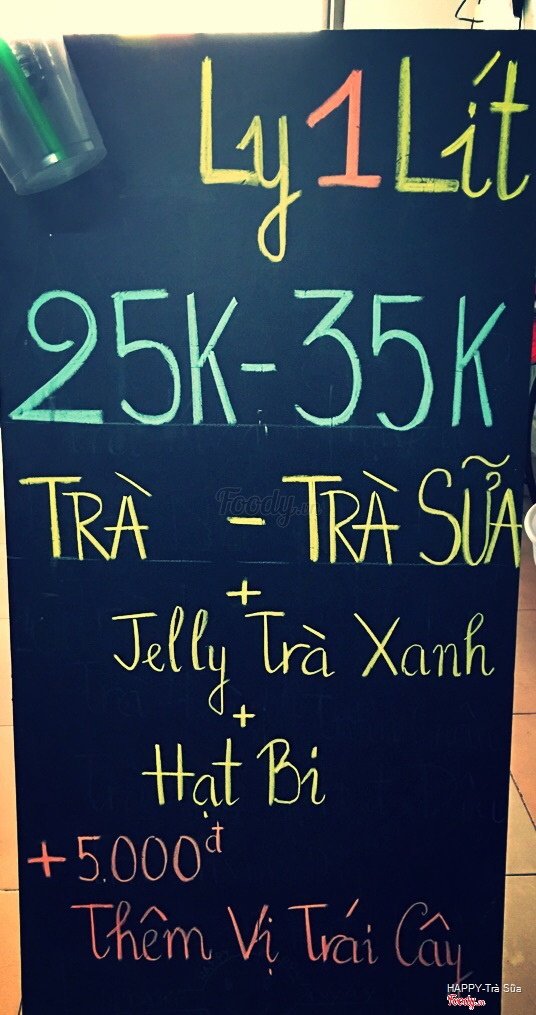 Ly 1 Lít
25K - 35K
TRÀ - TRÀ SỮA
+
Jelly Trà Xanh
+
Hạt Bi
+ 5.000đ
Thêm Vị Trái Cây
Foody.vn
HAPPY-Trà Sữa
Foody.vn